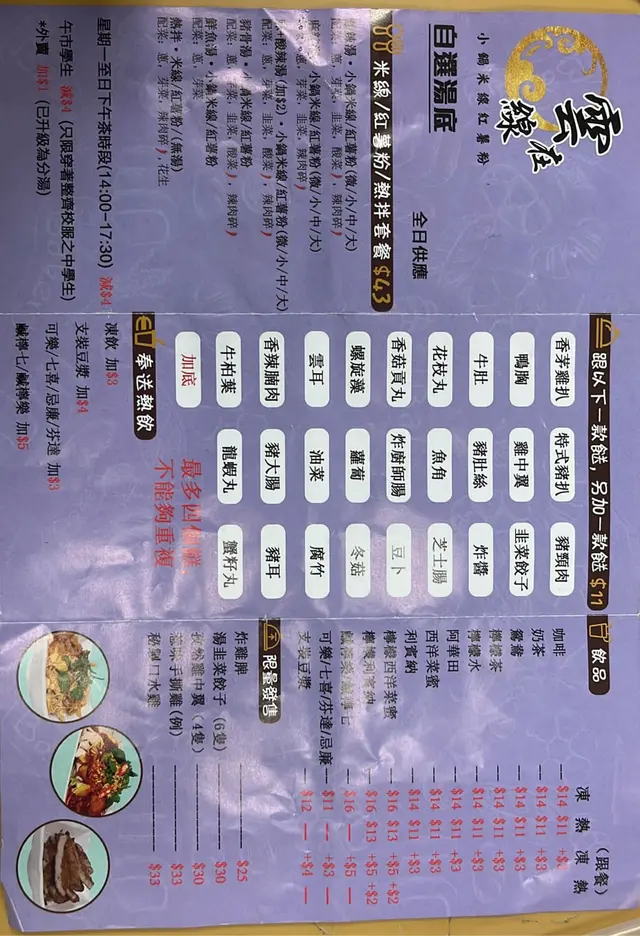 雲
線
小鍋米線紅薯粉
自選湯底
全日供應
米線/紅薯粉/熱拌套餐 $43
辣湯・小鍋米線/紅薯粉(微/小/中/大)
配菜：蔥，芽菜，韭菜，酸菜，辣肉碎
小鍋米線/紅薯粉(微/小/中/大)
配菜：蔥，芽菜，辣肉碎
酸辣湯(加$2)・小鍋米線/紅薯粉(微/小/中/大)
配菜：蔥，芽菜，韭菜，酸菜，辣肉碎
豬骨湯・小鍋米線/紅薯粉
配菜：蔥，芽菜，韭菜，酸菜，辣肉碎
鮮魚湯・小鍋米線/紅薯粉
配菜：蔥，芽菜，韭菜，酸菜，辣肉碎
熱拌・米線/紅薯粉/(無湯)
配菜：蔥，芽菜，辣肉碎，花生
星期一至日下午茶時段(14:00-17:30) 減$4
午市學生 減$4 (只限穿著整齊校服之中學生)
*外賣 加$1 (已升級為分湯)
跟以下一款餸，另加一款餸 $11
香茅雞扒 特式豬扒 豬頸肉
鴨胸 雞中翼 韭菜餃子
牛肚 豬肚絲 炸醬
花枝丸 魚角 芝士腸
香菇貢丸 炸廚師腸 豆卜
螺旋藻 蘿蔔 冬菇
雲耳 油菜 腐竹
香辣腩肉 豬大腸 豬耳
牛柏葉 龍蝦丸 蟹籽丸
加底
最多四個餸，
不能夠重複
奉送熱飲
凍飲 加$3
支裝豆漿 加$4
可樂/七喜/忌廉/芬達 加$3
鹹檸七/鹹檸樂 加$5
飲品
(跟餐)
凍 熱 凍 熱
咖啡 $14 $11 +$3
奶茶 $14 $11 +$3
鴛鴦 $14 $11 +$3
檸檬茶 $14 $11 +$3
檸檬水 $14 $11 +$3
阿華田 $14 $11 +$3
西洋菜蜜 $14 $11 +$3
利賓納 $14 $11 +$3
檸檬西洋菜蜜 $16 $13 +$5 +$2
檸檬利賓納 $16 $13 +$5 +$2
鹹檸樂/鹹檸七 $16 — +$5 —
可樂/七喜/芬達/忌廉 $11 — +$3 —
支裝豆漿 $12 — +$4 —
限量發售
炸雞脾 $25
湯韭菜餃子 (6隻) $30
秘然雞中翼 (4隻) $30
滋味手撕雞(例) $33
秘製口水雞 $33